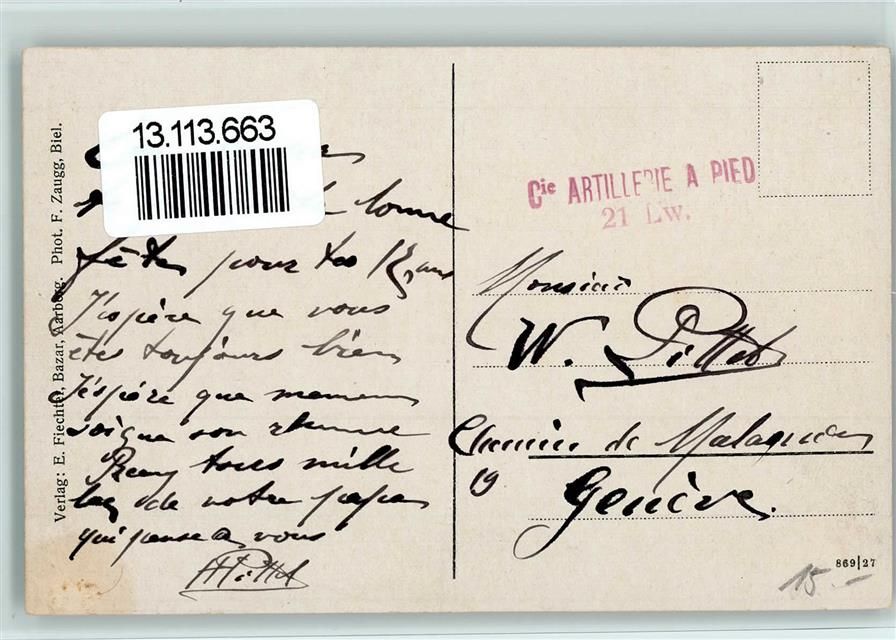 13.113.663
bonne
fêtes pour tes 12 ans
J'espère que vous
êtes toujours bien
J'espère que maman
soigne son rhume
tous mille
de votre papa
qui pense à vous
Pittet
Verlag: E. Fiechter, Bazar, Aarberg. Phot. F. Zaugg, Biel.
Cie ARTILLERIE A PIED
21 Lw.
Monsieur
W. Pittet
Chemin de Malagnou
19
Genève.
869|27
15.-